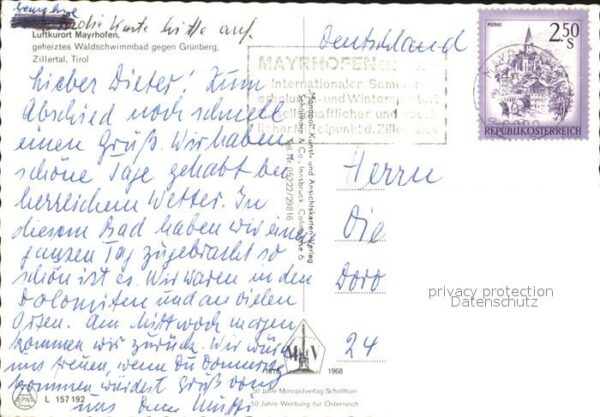 die Karte bitte auf.
Luftkurort Mayrhofen,
geheiztes Waldschwimmbad gegen Grünberg,
Zillertal, Tirol
Lieber Dieter! Zum
Abschied noch schnell
einen Gruß. Wir haben
schöne Tage gehabt bei
herrlichem Wetter. In
diesem Bad haben wir einen
ganzen Tag zugebracht so
schön ist es. Wir waren in den
Dolomiten und an vielen
Orten. Am Mittwoch morgen
kommen wir zurück. Wir würden
uns freuen, wenn du Donnerstag
kommen würdest. Gruß von
uns Deine Mutti
L 157 192
"Monopol", Kunst- und Ansichtskarten-Verlag
Schöllhorn & Co., Innsbruck,
Tel. Nr. 05222/29816
1968
50 Jahre Monopolverlag Schöllhorn
50 Jahre Werbung für Österreich
MAYRHOFEN
Internationaler Sommer
und Wintersport
Deutschland
MURAU
2.50
S
REPUBLIK ÖSTERREICH
Herrn
Die
Doro
24
privacy protection
Datenschutz